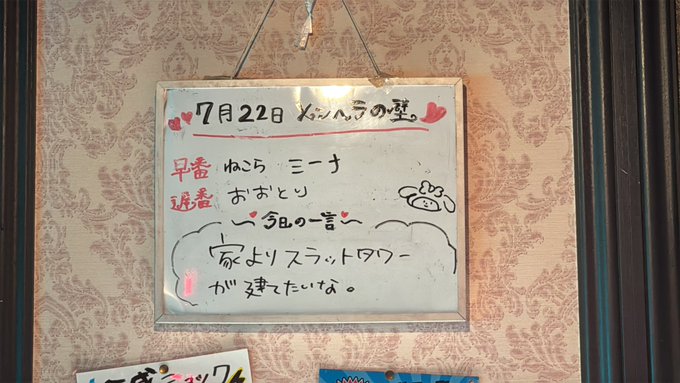 7月22日 メンヘラの壁
早番 ねこら ミーナ
遅番 おおとり
〜今日の一言〜
家よりスラットタワー
が建てたいな。